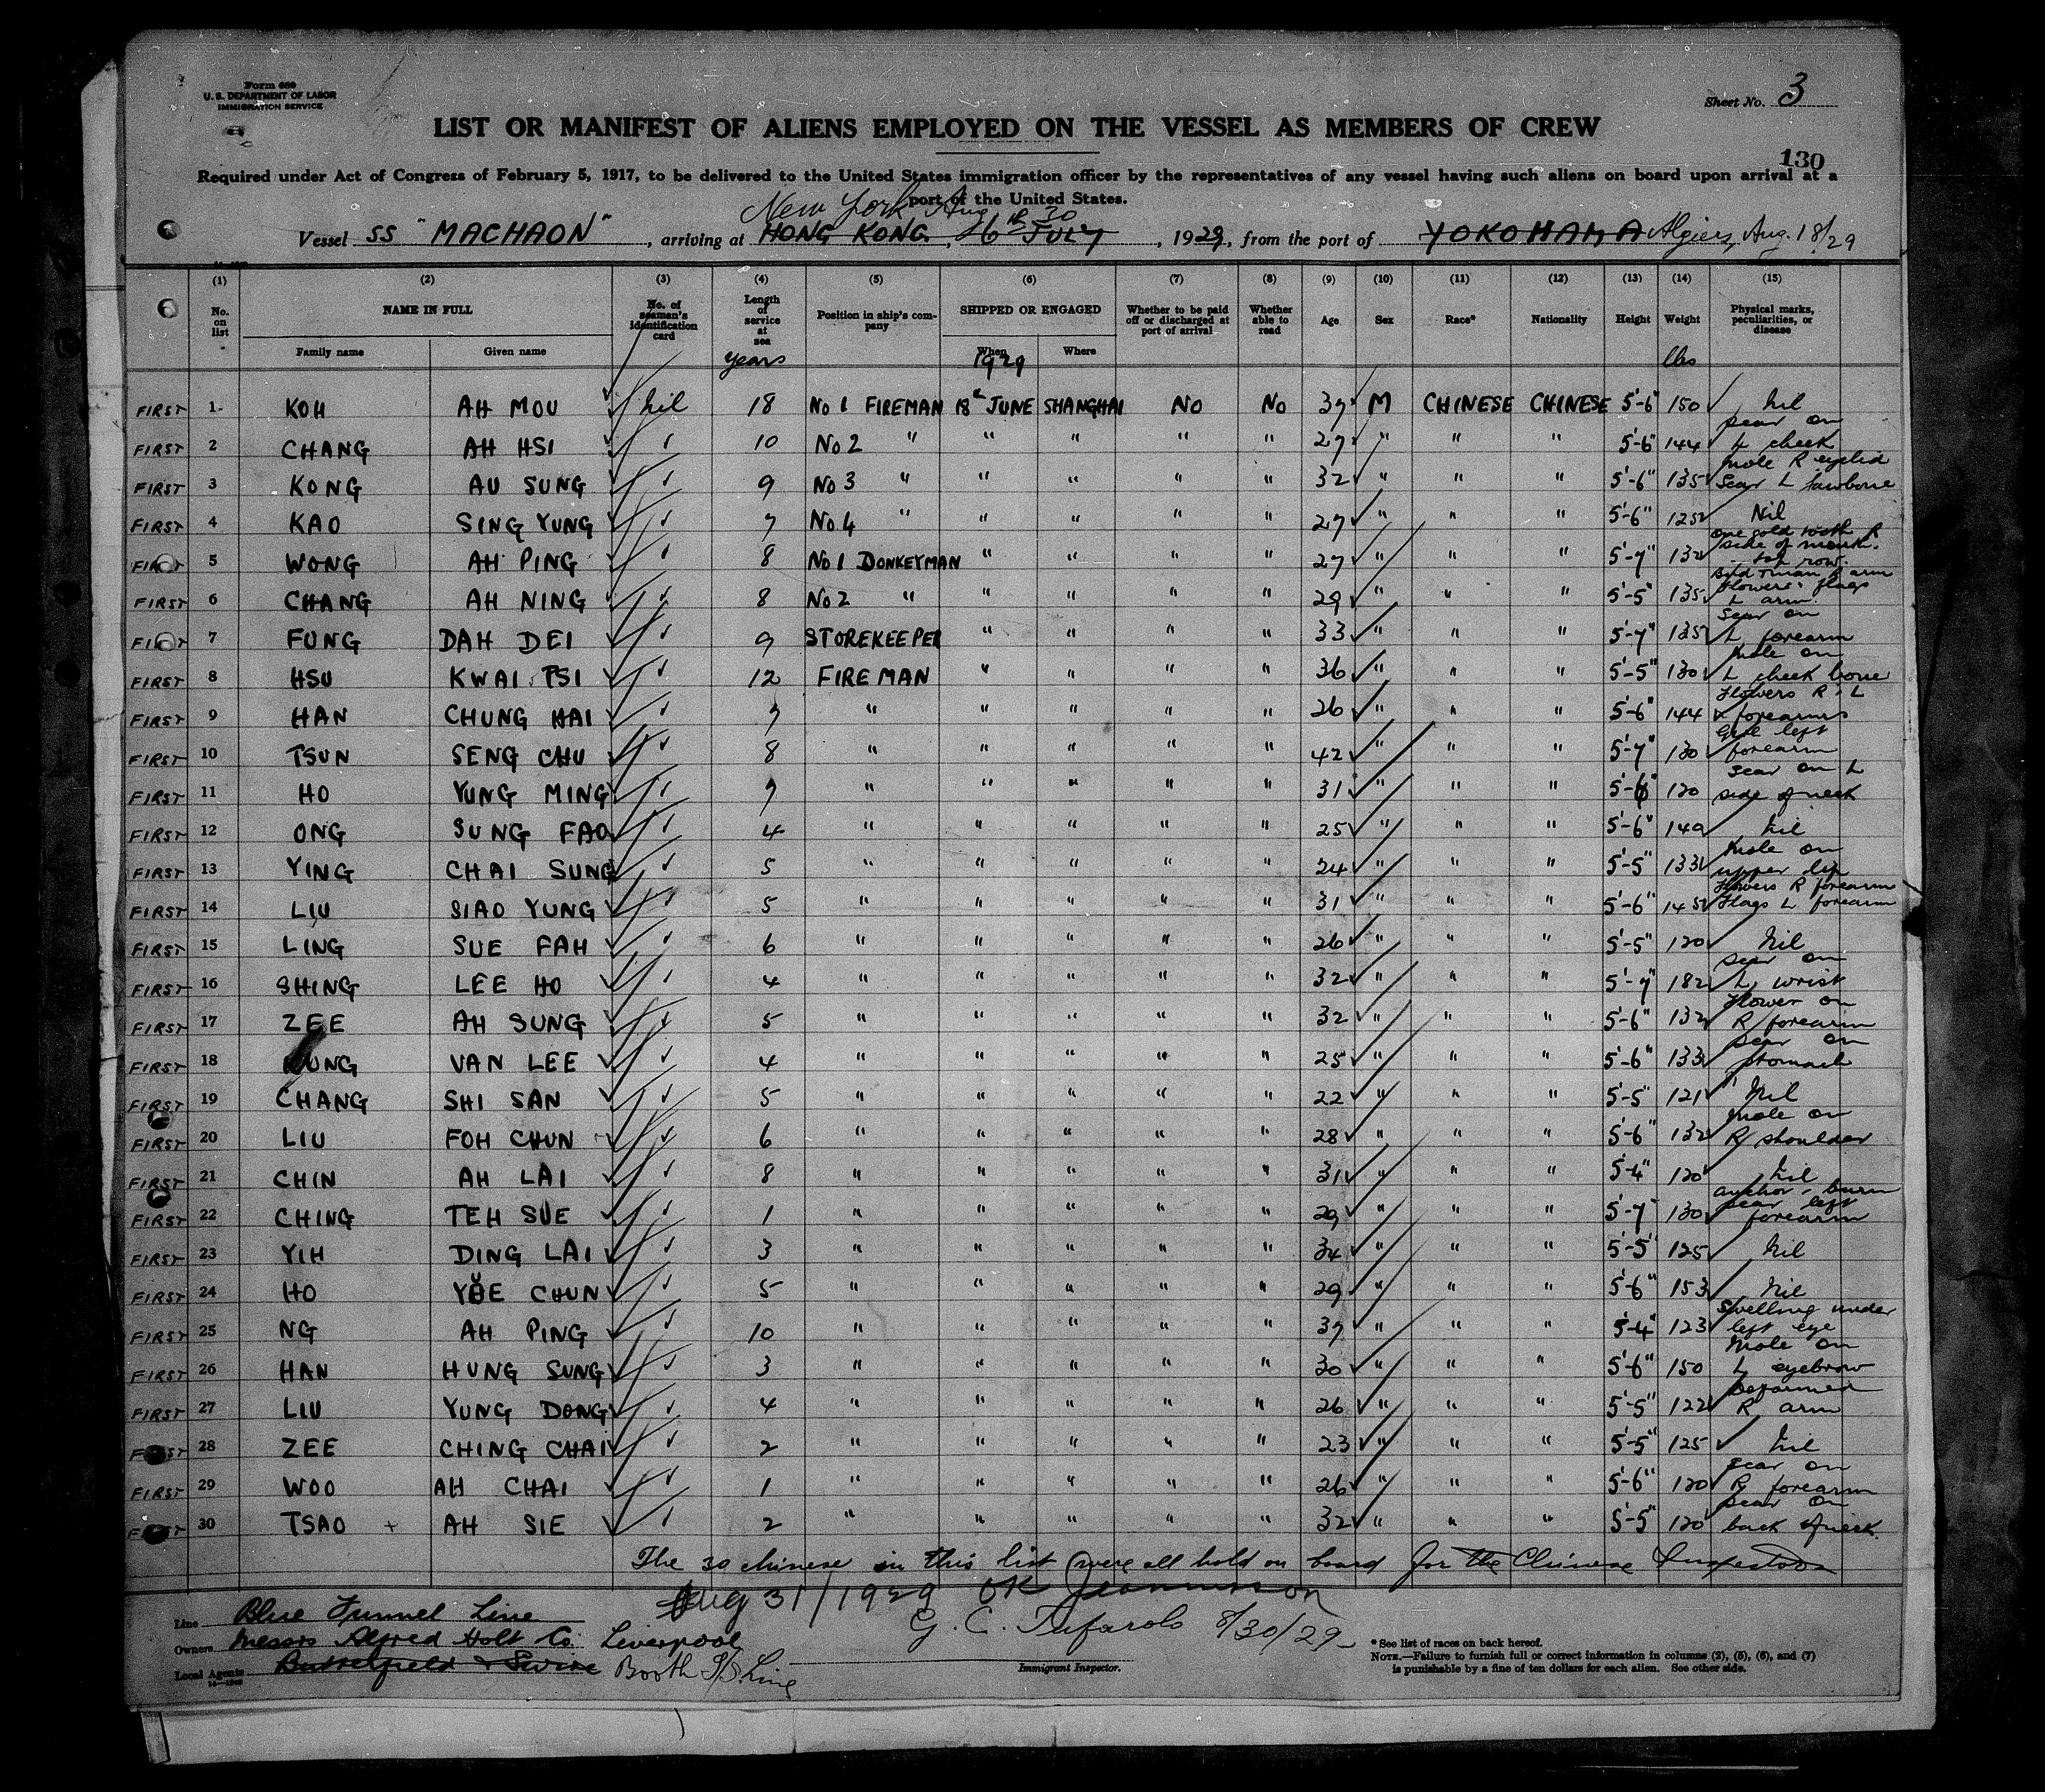 Form 680
U. S. DEPARTMENT OF LABOR
IMMIGRATION SERVICE
Sheet No. 3
LIST OR MANIFEST OF ALIENS EMPLOYED ON THE VESSEL AS MEMBERS OF CREW
130
Required under Act of Congress of February 5, 1917, to be delivered to the United States immigration officer by the representatives of any vessel having such aliens on board upon arrival at a
port of the United States.
New York Aug 30
Vessel SS "MACHAON", arriving at HONG KONG, 26th JULY, 1929, from the port of YOKOHAMA Algiers, Aug. 18/29
(1) (2) (3) (4) (5) (6) (7) (8) (9) (10) (11) (12) (13) (14) (15)
No. on list NAME IN FULL Family name Given name No. of seaman's identification card Length of service at sea years Position in ship's company SHIPPED OR ENGAGED When 1929 Where Whether to be paid off or discharged at port of arrival Whether able to read Age Sex Race* Nationality Height Weight lbs Physical marks, peculiarities, or disease
FIRST 1 KOH AH MOU Nil 18 No 1 FIREMAN 18th JUNE SHANGHAI NO NO 37 M CHINESE CHINESE 5'-6" 150 Nil
FIRST 2 CHANG AH HSI " 10 No 2 " " " " " 27 " " " 5'-6" 144 scar on L cheek
FIRST 3 KONG AU SUNG " 9 No 3 " " " " " 32 " " " 5'-6" 135 mole R eyelid Scar L Jawbone
FIRST 4 KAO SING YUNG " 7 No 4 " " " " " 27 " " " 5'-6" 125 Nil
FIRST 5 WONG AH PING " 8 No 1 DONKEYMAN " " " " 27 " " " 5'-7" 132 one gold tooth R side of mouth. top row.
FIRST 6 CHANG AH NING " 8 No 2 " " " " " 29 " " " 5'-5" 135 R arm flowers & flags L arm.
FIRST 7 FUNG DAH DEI " 9 STOREKEEPER " " " " 33 " " " 5'-7" 135 Scar on L forearm
FIRST 8 HSU KWAI TSI " 12 FIREMAN " " " " 36 " " " 5'-5" 130 mole on L cheek bone
FIRST 9 HAN CHUNG HAI " 7 " " " " " 26 " " " 5'-6" 144 flowers R & L forearms
FIRST 10 TSUN SENG CHU " 8 " " " " " 42 " " " 5'-7" 130 Girl left forearm
FIRST 11 HO YUNG MING " 7 " " " " " 31 " " " 5'-6" 120 scar on L side of neck
FIRST 12 ONG SUNG FAO " 4 " " " " " 25 " " " 5'-6" 140 Nil
FIRST 13 YING CHAI SUNG " 5 " " " " " 24 " " " 5'-5" 133 mole on upper lip
FIRST 14 LIU SIAO YUNG " 5 " " " " " 31 " " " 5'-6" 145 flowers R forearm flags L forearm
FIRST 15 LING SUE FAH " 6 " " " " " 26 " " " 5'-5" 120 Nil
FIRST 16 SHING LEE HO " 4 " " " " " 32 " " " 5'-7" 182 scar on L wrist
FIRST 17 ZEE AH SUNG " 5 " " " " " 32 " " " 5'-6" 132 flower on R forearm
FIRST 18 VAN LEE " 4 " " " " " 25 " " " 5'-6" 133 scar on stomach
FIRST 19 CHANG SHI SAN " 5 " " " " " 22 " " " 5'-5" 121 Nil
FIRST 20 LIU FOH CHUN " 6 " " " " " 28 " " " 5'-6" 132 mole on R shoulder
FIRST 21 CHIN AH LAI " 8 " " " " " 31 " " " 5'-4" 120 Nil
FIRST 22 CHING TEH SUE " 1 " " " " " 29 " " " 5'-7" 130 anchor & burn scar left forearm
FIRST 23 YIH DING LAI " 3 " " " " " 34 " " " 5'-5" 125 Nil
FIRST 24 HO CHUN " 5 " " " " " 29 " " " 5'-6" 153 Nil
FIRST 25 NG AH PING " 10 " " " " " 37 " " " 5'-4" 123 Swelling under left eye
FIRST 26 HAN HUNG SUNG " 3 " " " " " 30 " " " 5'-6" 150 mole on L eyebrow
FIRST 27 LIU YUNG DONG " 4 " " " " " 26 " " " 5'-5" 122 Deformed R arm
FIRST 28 ZEE CHING CHAI " 2 " " " " " 23 " " " 5'-5" 125 Nil
FIRST 29 WOO AH CHAI " 1 " " " " " 26 " " " 5'-6" 120 scar on R forearm
FIRST 30 TSAO + AH SIE " 2 " " " " " 32 " " " 5'-5" 120 scar on back of neck.
The 30 chinese in this list were all held on board for the Chinese Inspector
Aug 31/1929 OK
Line Blue Funnel Line
G. C. Tufarolo 8/30/29
Owners Messrs Alfred Holt Co Liverpool
Local Agents Butterfield & Swire Booth S/S Line
Immigrant Inspector.
* See list of races on back hereof.
NOTE.—Failure to furnish full or correct information in columns (2), (5), (6), and (7)
is punishable by a fine of ten dollars for each alien. See other side.